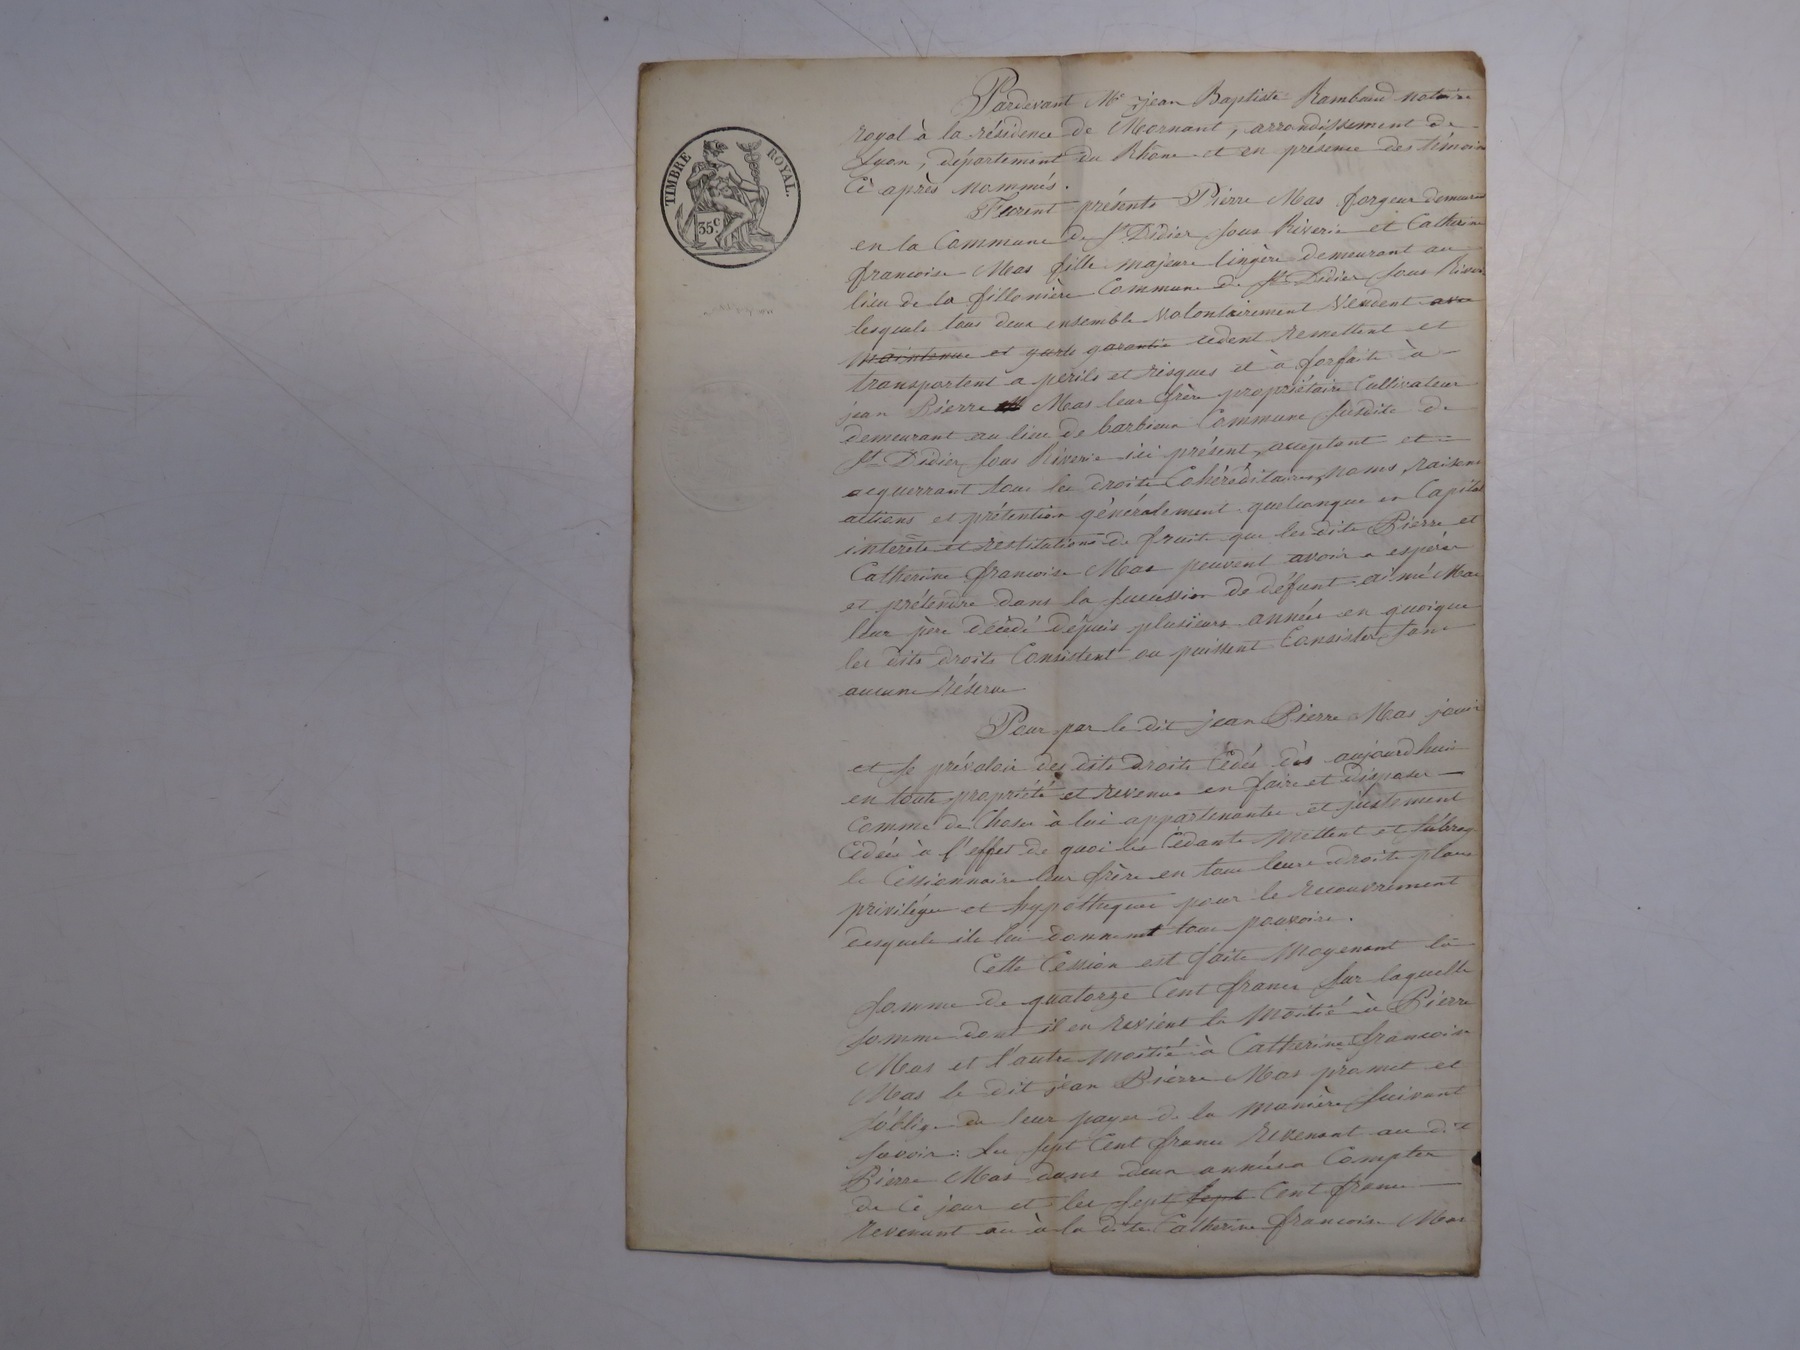 TIMBRE ROYAL.
35c.
Pardevant Me jean Baptiste Rambaud notaire
royal à la résidence de Mornant, arrondissement de
Lyon, département du Rhône et en présence des témoins
Ci après nommés.
Furent présents Pierre Mas forgeur demeurant
en la Commune de St Didier sous Riverie et Catherine
francoise Mas fille majeure lingère demeurant au
lieu de la fillonière Commune de St Didier sous Riverie
lesquels tous deux ensemble volontairement Vendent avec
maintenue et garantie cedent remettent et
transportent a perils et risques et à forfaits à
jean Pierre Mas leur frère propriétaire Cultivateur
demeurant au lieu de barbieux Commune susdite de
St Didier sous Riverie ici présent, acceptant et
acquerrant tous les droits Cohéréditaires, noms, raisons
actions et prétention généralement quelconque en Capital
interêts et restitutions de fruits que les dits Pierre et
Catherine francoise Mas peuvent avoir a espérer
et prétendre dans la succession de défunt aimé Mas
leur père décédé depuis plusieurs années en quoique
les dits droits Consistent ou puissent Consister sans
aucune Réserve
Pour par le dit jean Pierre Mas jouir
et se prévaloir des dits droits Cédés dès aujourdhui
en toute propriété et revenus en faire et disposer
Comme de Chose à lui appartenantes et justement
Cédées à l'effet de quoi les Cédants mettent et subrog
le Cessionnaire leur frère en tous leurs droits place
privilèges et hypothèques pour le recouvrement
desquels ils lui donnent tous pouvoirs.
Cette Cession est faite Moyenant la
somme de quatorze Cent francs sur laquelle
somme dont il en revient la Moitié à Pierre
Mas et l'autre moitié à Catherine francoise
Mas le dit jean Pierre Mas promet et
s'oblige de leur payer de la manière suivant
savoir: Les sept Cent francs revenant au dit
Pierre Mas dans deux années a Compter
de Ce jour et les sept sept Cent francs
revenant au à la dite Catherine francoise Mas